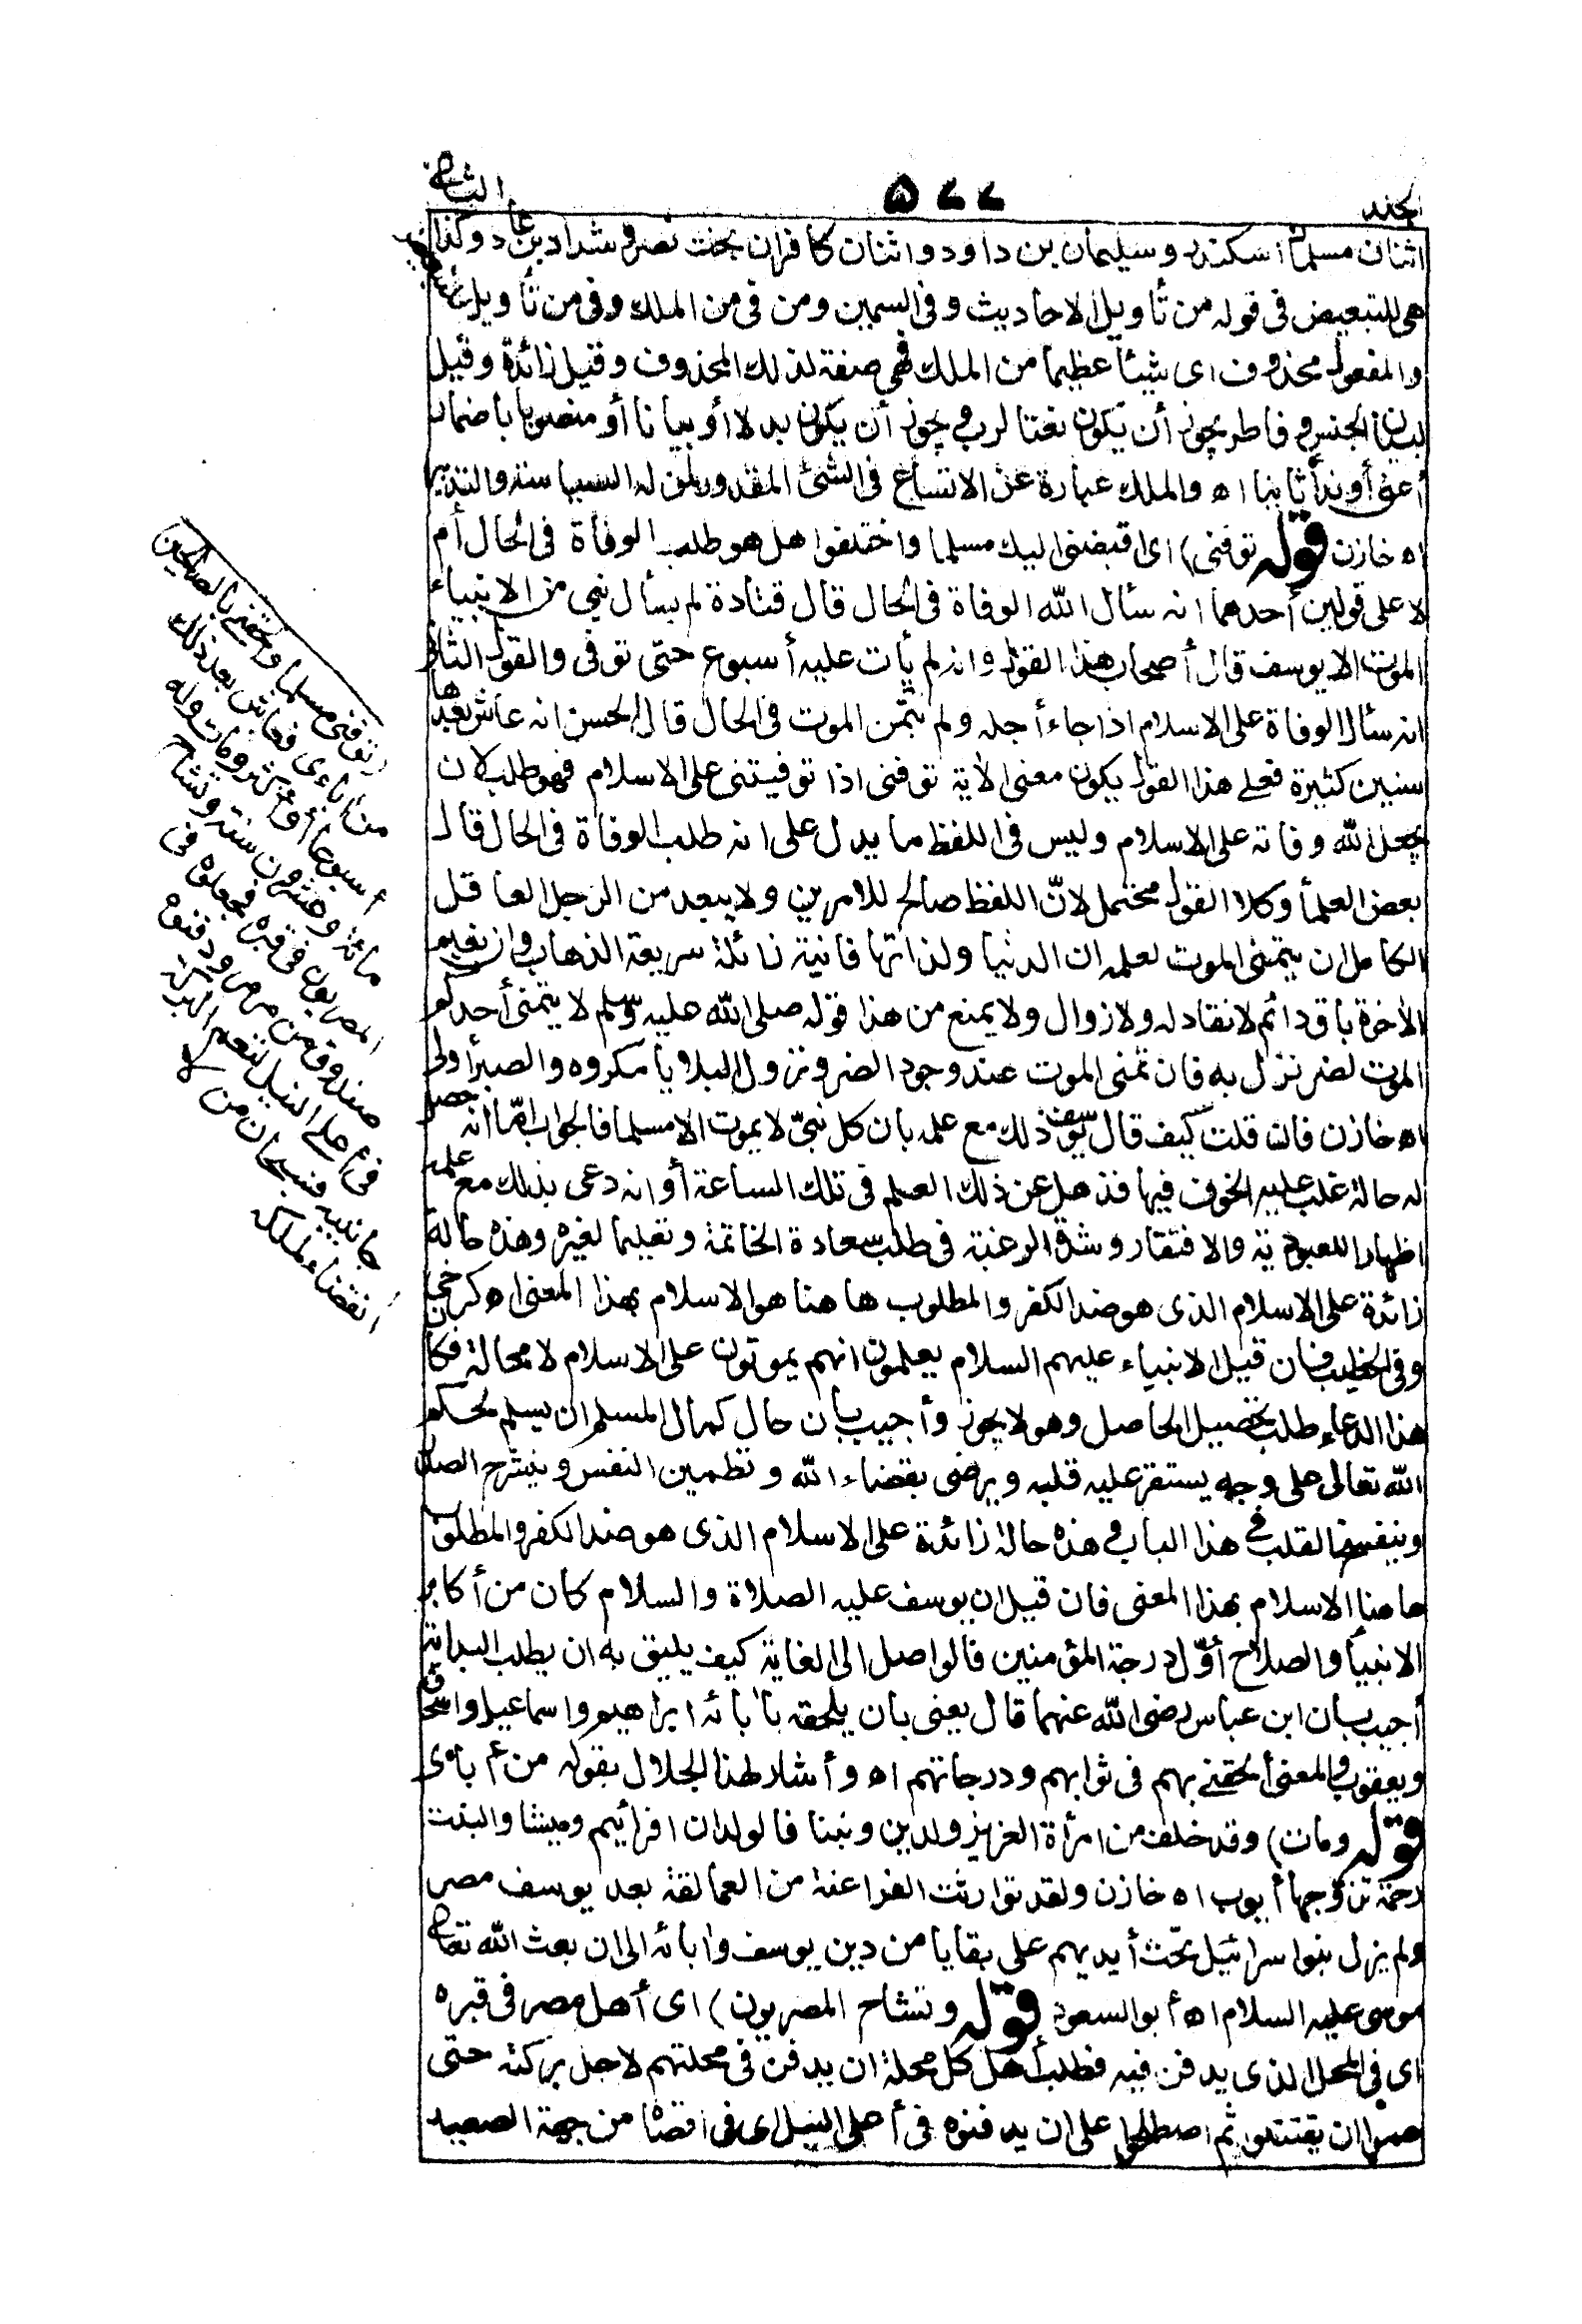 الجلد ٥٧٧ الثانى
اثنان مسلمان اسكندر وسليمان بن داود واثنان كافران بخت نصر وشداد بن عاد وكذا
هى للتبعيض فى قوله من تأويل الاحاديث وفى السمين ومن فى من الملك وفى من تأويل
والمفعول محذوف اى شيئا عظيما من الملك فهى صفة لذلك المحذوف وقيل زائدة وقيل
لبيان الجنس وفاطر يجوز أن يكون نعتا لرب ويجوز أن يكون بدلا أو بيانا أو منصوبا باضمار
أعنى أو نداً ثانيا اه والملك عبارة عن الاتساع فى الشئ المقدور لمن له السياسة والتدبير
اه خازن قوله توفنى) اى اقبضنى اليك مسلما واختلفوا هل هو طلب الوفاة فى الحال أم
لا على قولين أحدهما انه سأل الله الوفاة فى الحال قال قتادة لم يسأل نبي من الانبياء
الموت الا يوسف قال أصحاب هذا القول وانه لم يأت عليه أسبوع حتى توفى والقول الثانى
انه سأل الوفاة على الاسلام اذا جاء أجله ولم يتمن الموت فى الحال قال الحسن انه عاش بعدها
سنين كثيرة فعلى هذا القول يكون معنى الآية توفنى اذا توفيتنى على الاسلام فهو طلب لان
يجعل الله وفاته على الاسلام وليس فى اللفظ ما يدل على انه طلب الوفاة فى الحال قال
بعض العلمأ وكلا القول محتمل لانّ اللفظ صالح للامرين ولا يبعد من الرجل العاقل
الكامل ان يتمنى الموت لعلمه ان الدنيا ولذاتها فانية زائلة سريعة الذهاب وان نعيم
الآخرة باق دائم لا نفاد له ولا زوال ولا يمنع من هذا قوله صلى الله عليه وسلم لا يتمنى أحدكم
الموت لضر نزل به فان تمنى الموت عند وجود الضر ونزول البلايا مكروه والصبر أولى
اه خازن فان قلت كيف قال يوسف ذلك مع علمه بان كل نبىّ لا يموت الا مسلما فالجواب امّا انه حصل
له حالة غلب عليه الخوف فيها فذهل عن ذلك العلم فى تلك الساعة أو انه دعى بذلك مع علمه
اظهارا للعبودية والافتقار وشدة الرغبة فى طلب سعادة الخاتمة وتعليما لغيره وهذه حالة
زائدة على الاسلام الذى هو ضد الكفر والمطلوب ها هنا هو الاسلام بهذا المعنى اه كرخى
وفى الخطيب فان قيل الانبياء عليهم السلام يعلمون انهم يموتون على الاسلام لا محالة فكان
هذا الدعاء طلب تحصيل الحاصل وهو لا يجوز وأجيب بأن حال كمال المسلم ان يسلم لحكم
الله تعالى على وجه يستقر عليه قلبه ويرضى بقضاء الله وتطمين النفس وينشرح الصدر
وينفسح القلب فى هذا الباب وهذه حالة زائدة على الاسلام الذى هو ضد الكفر والمطلوب
هاهنا الاسلام بهذا المعنى فان قيل ان يوسف عليه الصلاة والسلام كان من أكابر
الانبيأ والصلاح أوّل درجة المؤمنين فالواصل الى الغاية كيف يليق به ان يطلب البداية
أجيب بان ابن عباس رضى الله عنهما قال يعنى بان يلحقه بآبائه ابراهيم واسماعيل واسحاق
ويعقوب والمعنى ألحقنى بهم فى ثوابهم ودرجاتهم اه وأشار لهذا الجلال بقوله من ءاباءى
قوله ومات) وقد خلف من امرأة العزيز ولدين وبنتا فالولدان افرائيم وميشا والبنت
رحمة تزوّجها أيوب اه خازن ولقد توارثت الفراعنة من العمالقة بعد يوسف مصر
ولم يزل بنوا سرائيل تحت أيديهم على بقايا من دين يوسف وآبائه الى ان بعث الله تعالى
موسى عليه السلام اه أبو السعود قوله وتشاح المصريون) اى أهل مصر فى قبره
اى فى المحل الذى يدفن فيه فطلب أهل كل محلة ان يدفن فى محلتهم لاجل بركته حتى
هموا ان يقتتلوا ثم اصطلحوا على ان يدفنوه فى أعلى النيل اى فى اقصاه من جهة الصعيد
توفنى مسلما وألحقنى بالصالحين
من ءاباءى فعاش بعد ذلك
أسبوعا أو أكثر ومات وله
مائة وعشرون سنة وتشاح
المصريون فى قبره فجعلوه فى
صندوق من مرمر ودفنوه
فى أعلى النيل لتعم البركة
جانبيه فسبحان من لا
انقضاء لملكه